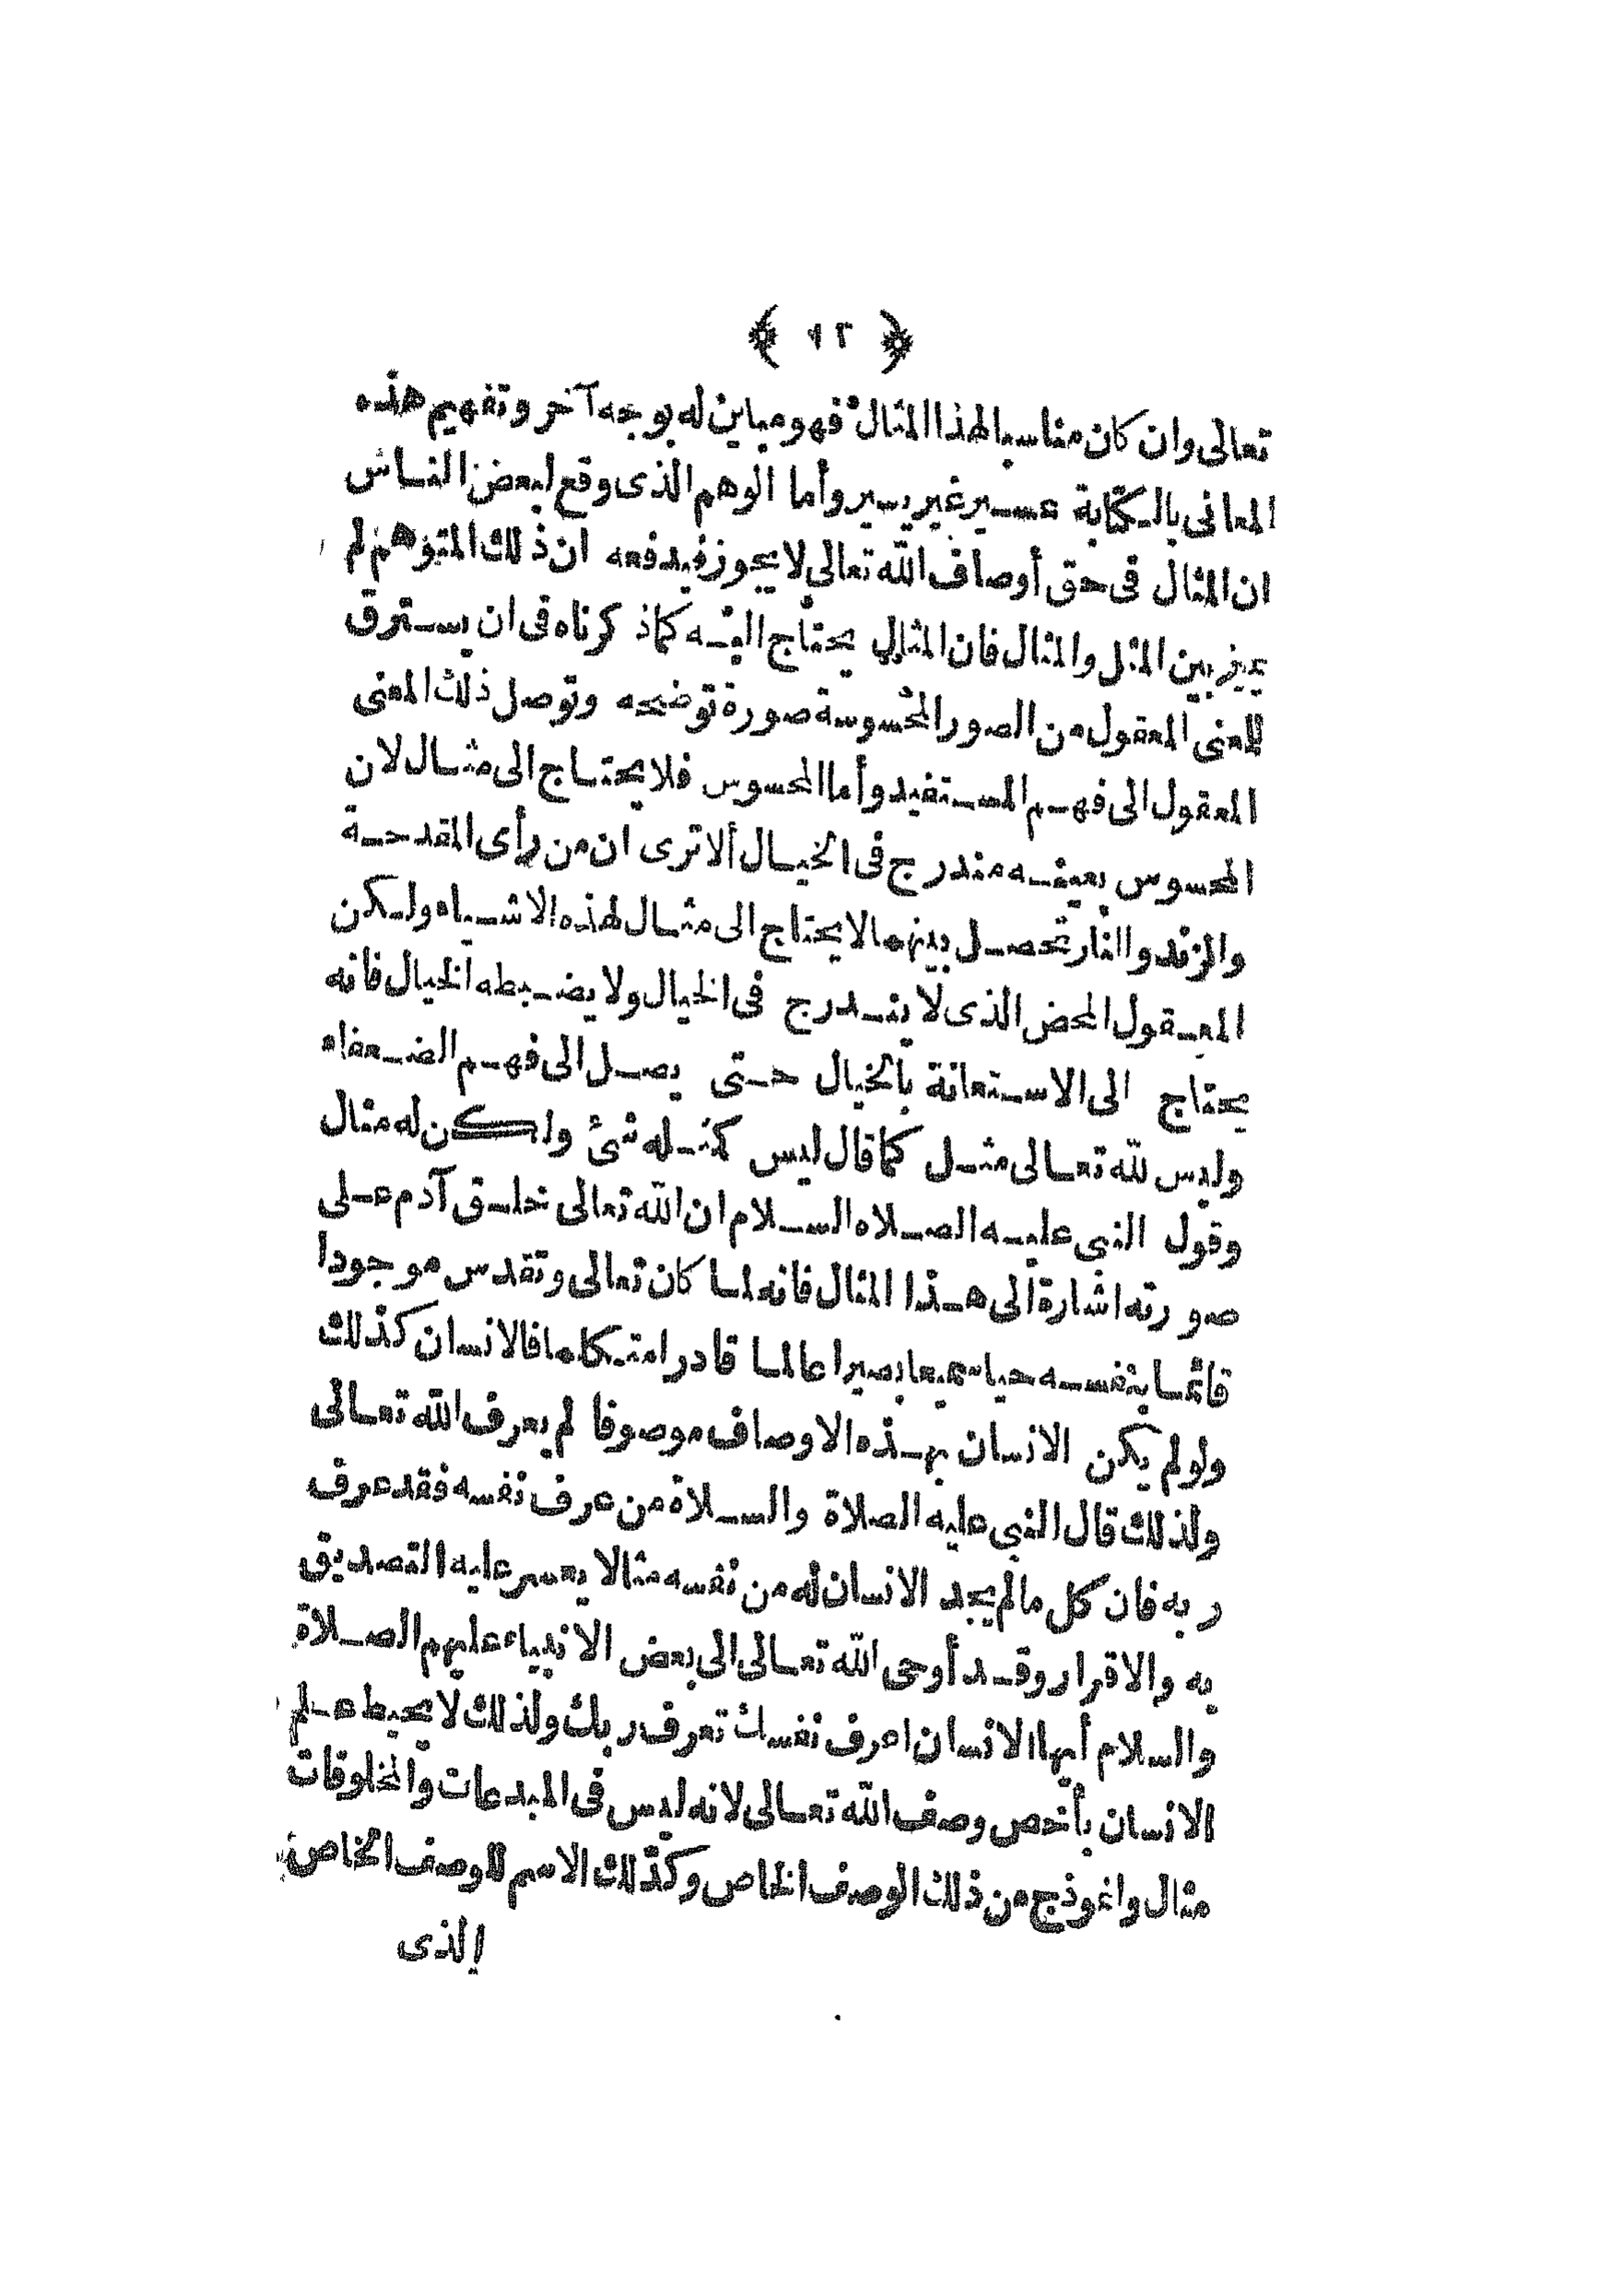 ﴿ ١٢ ﴾
تعالى وان كان مناسبا لهذا المثال فهو مباين له بوجه آخر وتفهيم هذه
المعانى بالكتابة عسير غير يسير وأما الوهم الذى وقع لبعض الناس
ان المثال فى حق أوصاف الله تعالى لا يجوز فيدفعه ان ذلك المتوهم لم
يميز بين المثل والمثال فان المثال يحتاج اليه كما ذكرناه فى ان يسترق
للمعنى المعقول من الصور المحسوسة صورة توضحه وتوصل ذلك المعنى
المعقول الى فهم المستفيد وأما المحسوس فلا يحتاج الى مثال لان
المحسوس بعينه مندرج فى الخيال ألا ترى ان من رأى المقدحة
والزند والنار تحصل بينهما لا يحتاج الى مثال لهذه الاشياء ولكن
المعقول المحض الذى لا يندرج فى الخيال ولا يضبطه الخيال فانه
يحتاج الى الاستعانة بالخيال حتى يصل الى فهم الضعفاء
وليس لله تعالى مثل كما قال ليس كمثله شئ ولكن له مثال
وقول النبى عليه الصلاه السلام ان الله تعالى خلق آدم على
صورته اشارة الى هذا المثال فانه لما كان تعالى وتقدس موجودا
قائما بنفسه حيا سميعا بصيرا عالما قادرا متكلما فالانسان كذلك
ولو لم يكن الانسان بهذه الاوصاف موصوفا لم يعرف الله تعالى
ولذلك قال النبى عليه الصلاة والسلاة من عرف نفسه فقد عرف
ربه فان كل ما لم يجد الانسان له من نفسه مثالا يعسر عليه التصديق
به والاقرار وقد أوحى الله تعالى الى بعض الانبياء عليهم الصلاة
والسلام أيها الانسان اعرف نفسك تعرف ربك ولذلك لا يحيط علم
الانسان بأخص وصف الله تعالى لانه ليس فى المبدعات والمخلوقات
مثال وانموذج من ذلك الوصف الخاص وكذلك الاسم للوصف الخاص
الذى